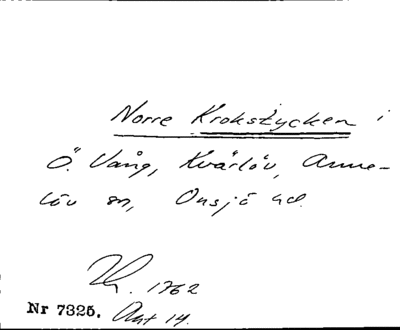 Norre Krokstycken i
Ö. Vång, Kvärlöv, Anne-
löv sn, Onsjö hd.
1762
Nr 7325. Akt 14.